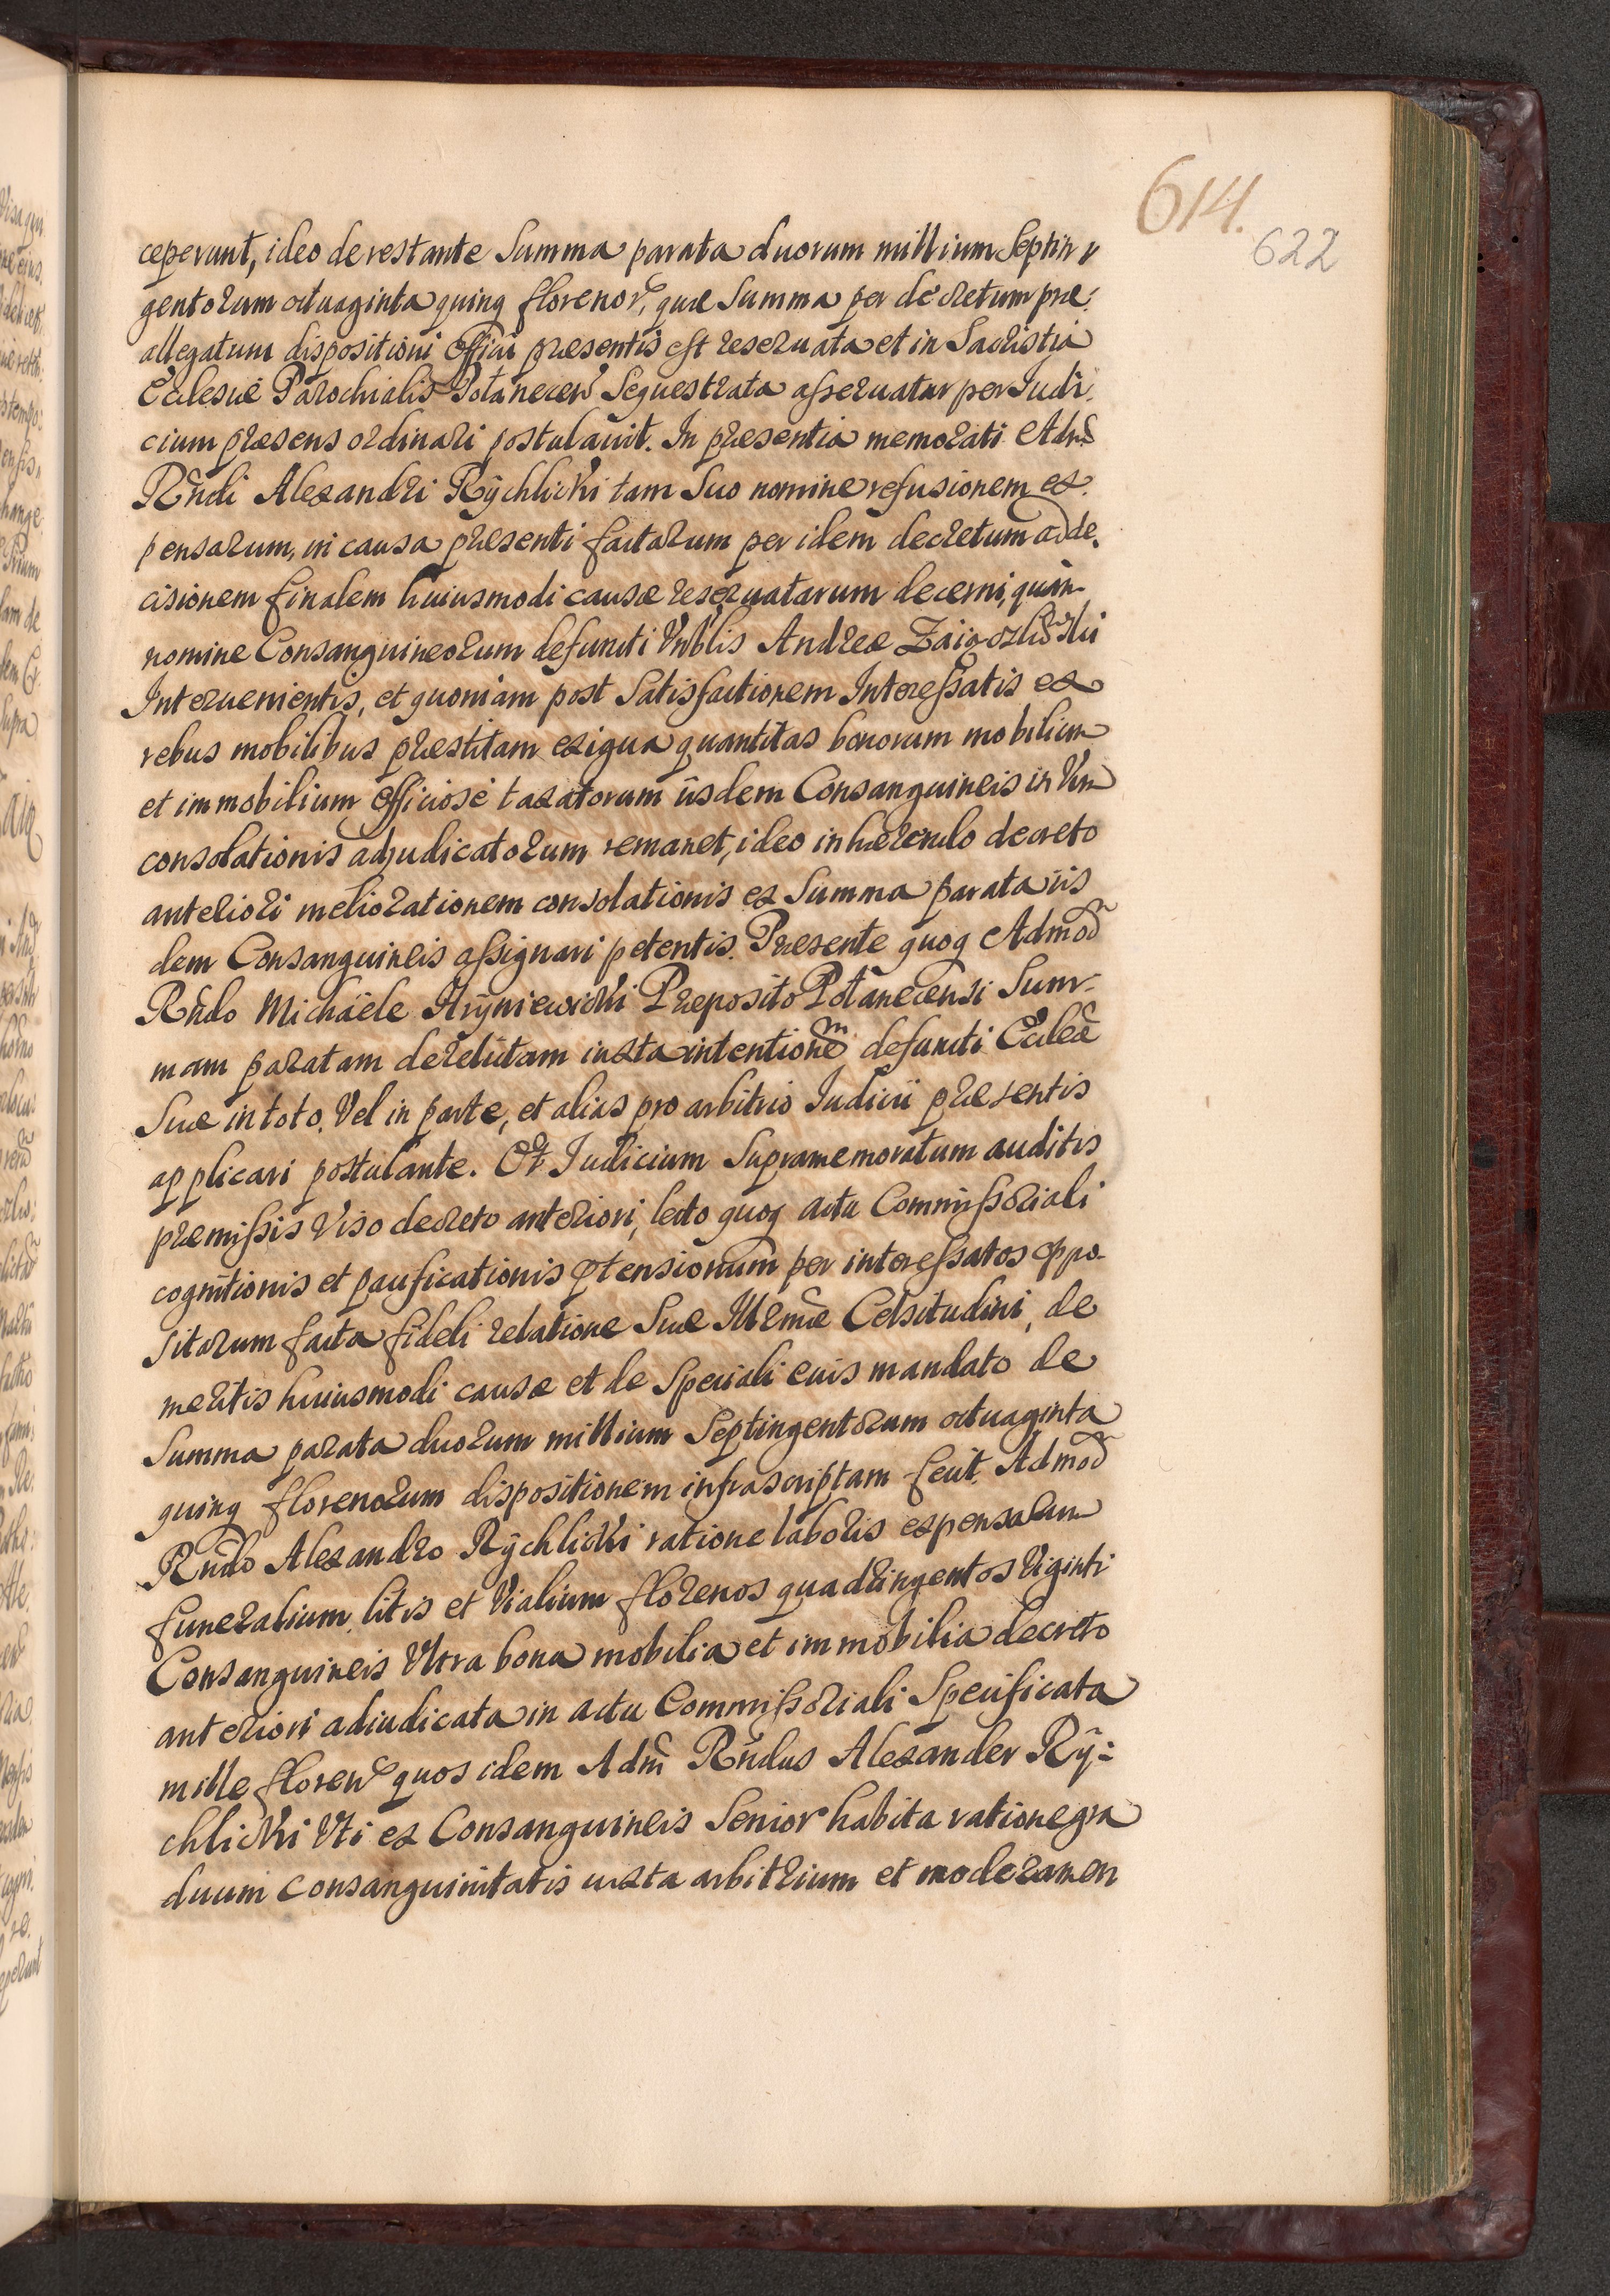 614.
622
ceperunt, ideo de restante Summa parata duorum millium Septin
gentorum octuaginta quinq florenor, quæ Summa per decretum præ:
allegatum dispositioni Officii præsentis est reseruata et in Sacristia
Ecclesiæ Parochialis Potanecen Sequestrata asseruatur per Iudi:
cium præsens ordinari postulauit. In præsentia memorati Adm
Rndi Alexandri Rÿchlicki tam Suo nomine refusionem ex
pensarum, in causa præsenti factarum per idem decretum ad de,
cisionem finalem huiusmodi causæ reseruatarum decerni, quàm
nomine Consanguineorum defuncti Vnblis Andreæ
Interuenientis, et quoniam post Satisfactionem Interessatis ex
rebus mobilibus præstitam exigua quantitas bonorum mobilium
et immobilium Officiosè taxatorum iisdem Consanguineis in Vim
consolationis adjudicatorum remanet, ideo inhærendo decreto
anteriori meliorationem consolationis ex Summa parata iis
dem Consanguineis assignari petentis. Præsente quoq Admod
Rndo Michaële Hrÿniewicki Præposito Potanecensi Sum-
mam paratam derelictam iuxta intentionem defuncti Eccleæ
Suæ in toto, Vel in parte, et alias pro arbitrio Iudicii præsentis
applicari postulante. Et Iudicium Supramemoratum auditis
præmissis Viso decreto anteriori, lecto quoq actu Commissoriali
cognitionis et paucificationis ptensionum per interessatos oppo-
sitarum facta fideli relatione Suæ Illrmæ Celsitudini, de
meritis huiusmodi causæ et de Speciali euis mandato de
Summa parata duorum millium Septingentorum octuaginta
quinq florenorum dispositionem infrascriptam fecit. Admod
Rndo Alexandro Rÿchlicki ratione laboris expensarum
funeralium litis et Vialium florenos quadringentos Viginti
Consanguineis Vltra bona mobilia et immobilia decreto
anteriori adiudicata in actu Commissoriali Specificata
mille floren quos idem Adm Rndus Alexander Rÿ:
chlicki Vti ex Consanguineis Senior habita ratione gra
duum consanguinitatis iuxta arbitrium et moderamen